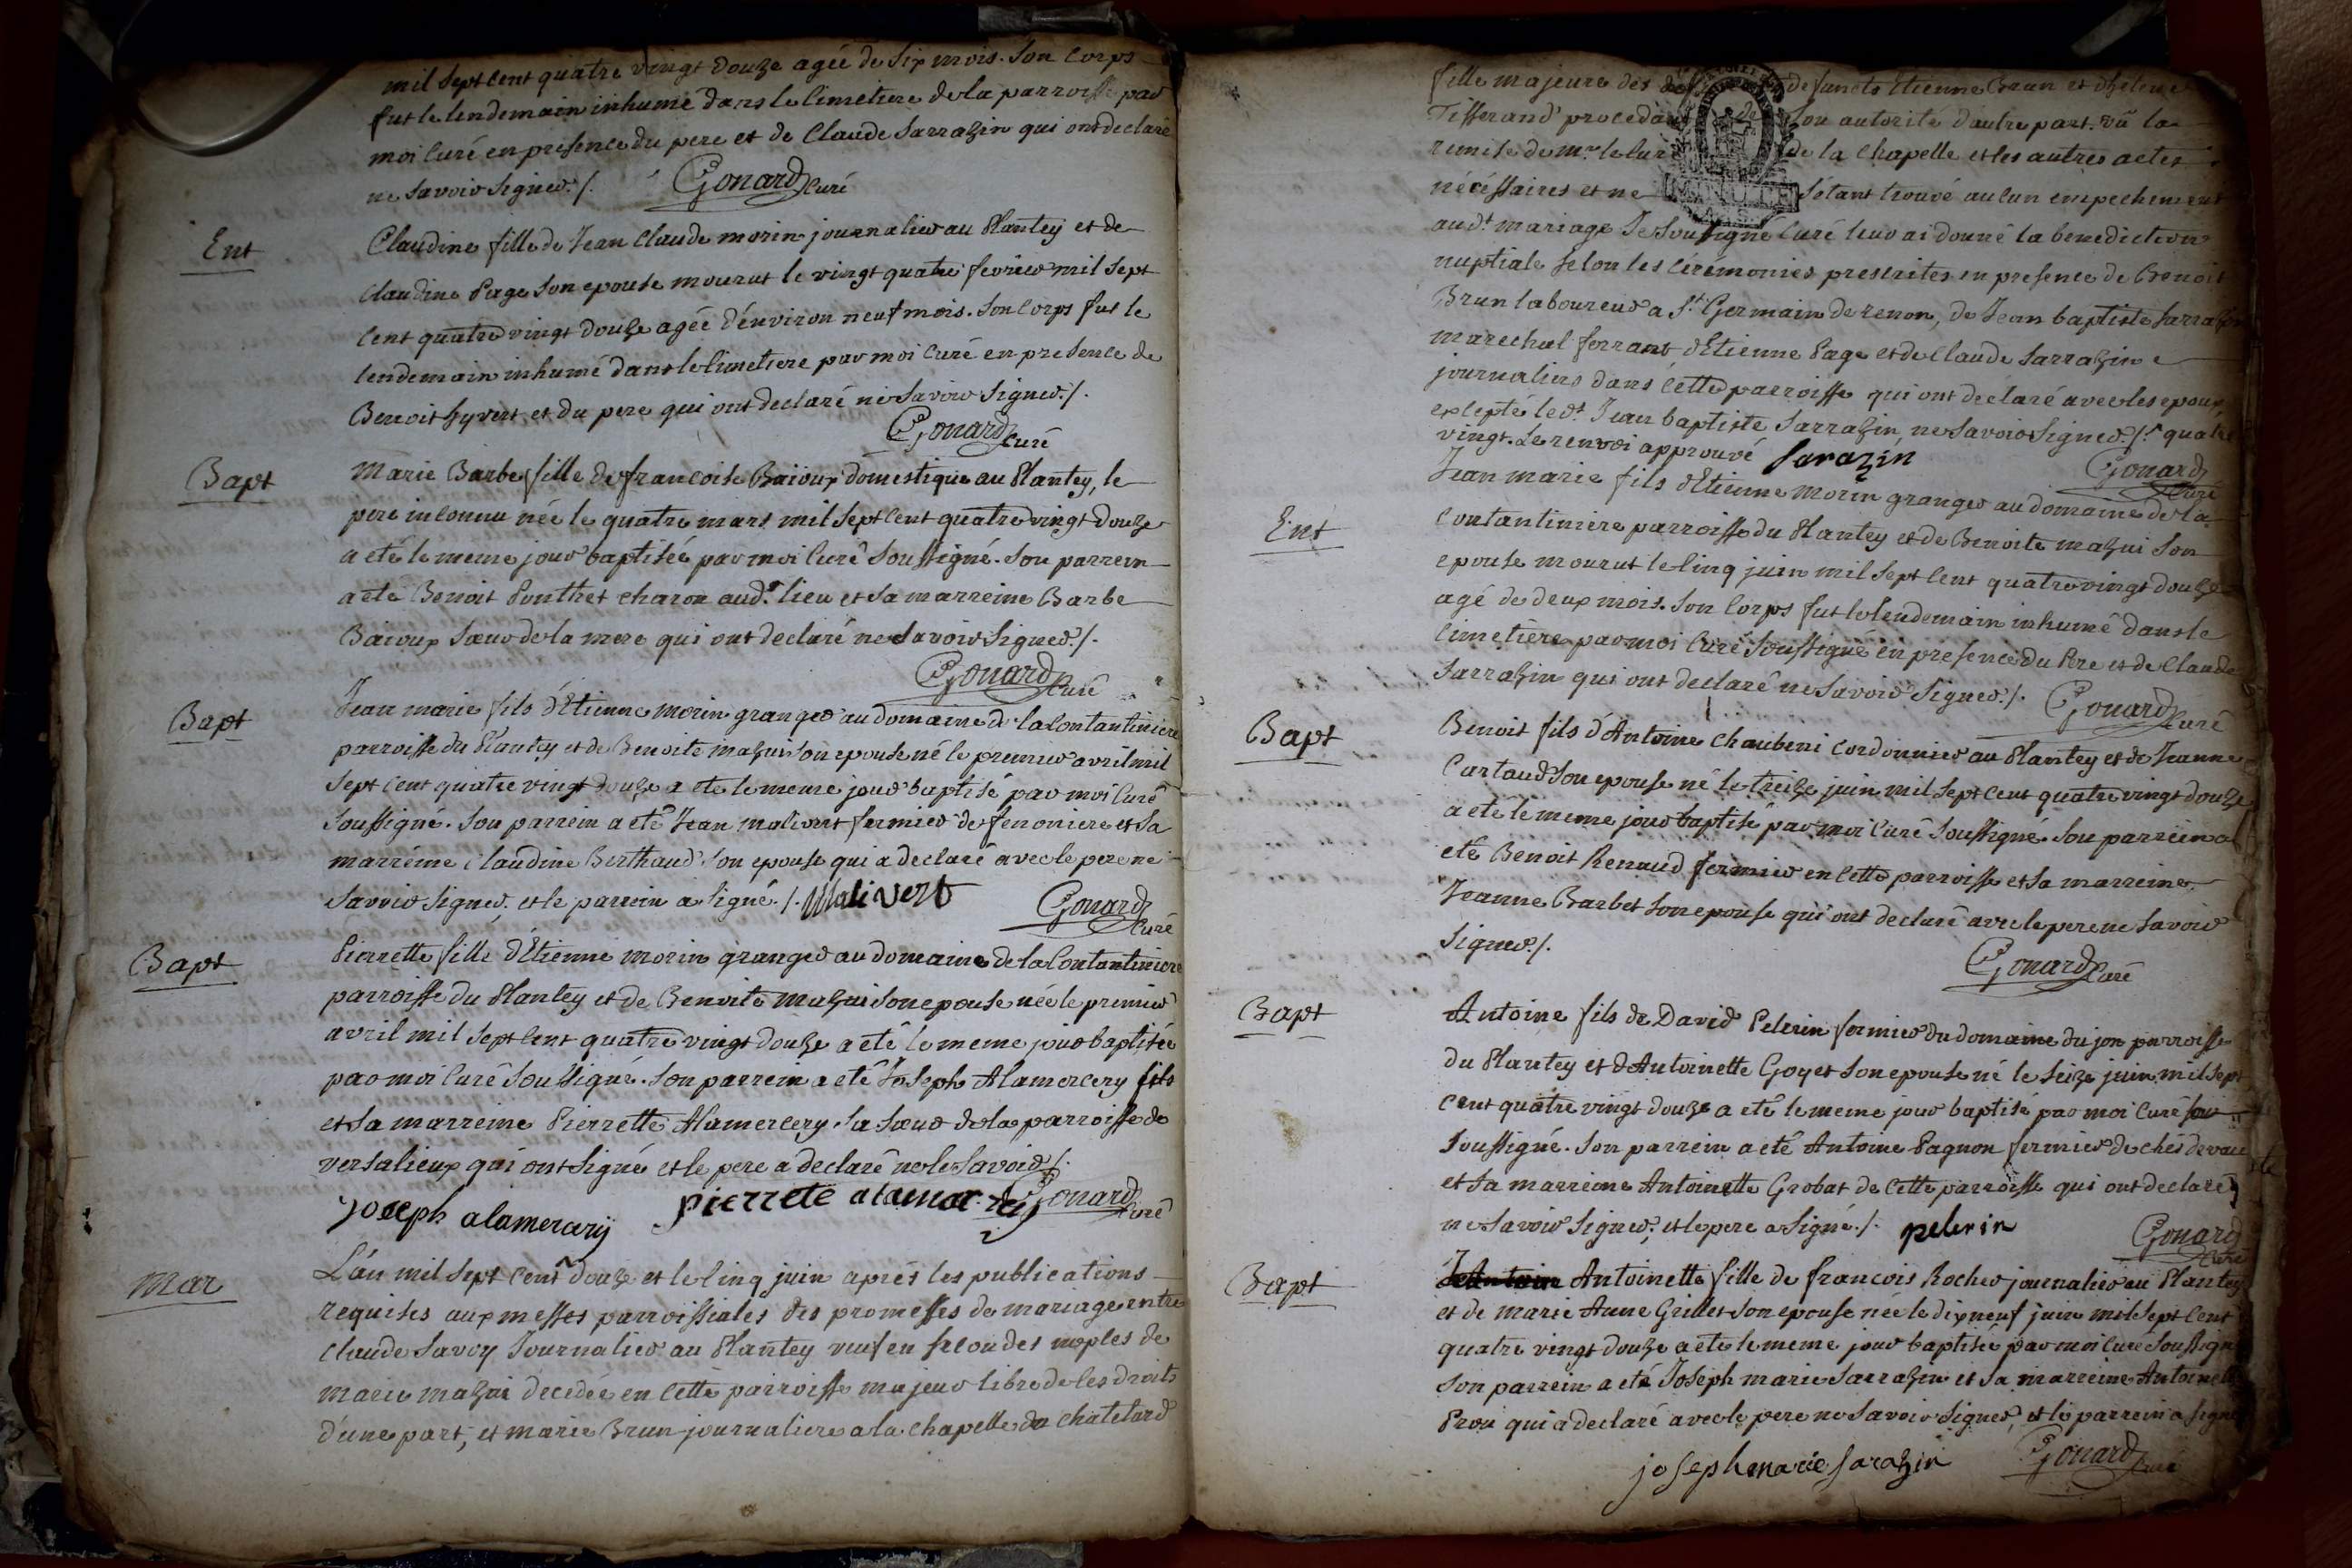 mil sept cent quatre vingt douze agée de six mois. Son corps
fut le lendemain inhumé dans le cimetiere de la parroisse par
moi curé en presence du pere et de Claude Sarrazin qui ont declaré
ne savoir signer./. Gonard curé
Ent
Claudine fille de Jean Claude morin journalier au Plantey et de
Claudine Page son epouse mourut le vingt quatre fevrier mil sept
cent quatre vingt douze agée d'environ neuf mois. Son corps fut le
lendemain inhumé dans le cimetiere par moi curé en presence de
Benoit hyvert et du pere qui ont declaré ne savoir signer./.
Gonard curé
Bapt
Marie Barbe fille de francoise Baioux domestique au Plantey, le
pere inconnu née le quatre mars mil sept cent quatre vingt douze
a eté le meme jour baptisée par moi curé soussigné. Son parrein
a eté Benoit Ponthet charon aud.t lieu et sa marreine Barbe
Baioux soeur de la mere qui ont declaré ne savoir signer./.
Gonard curé
Bapt
Jean marie fils d'Etienne morin granger au domaine de la Contantiniere
parroisse du Plantey et de Benoite mazui son epouse né le premier avril mil
sept cent quatre vingt douze a eté le meme jour baptisé par moi curé
soussigné. Son parrein a eté Jean malivert fermier de fenoniere et sa
marreine Claudine Berthaud son epouse qui a declaré avec le pere ne
savoir signer. et le parrein a signé./. Malivert Gonard curé
Bapt
Pierrette fille d'Etienne morin granger au domaine de la Contantiniere
parroisse du Plantey et de Benoite mazui son epouse née le premier
avril mil sept cent quatre vingt douze a eté le meme jour baptisée
par moi curé soussigné. Son parrein a eté Joseph Alamercery fils
et sa marreine Pierrette Alamercery sa soeur de la parroisse de
versalieux qui ont signé et le pere a declaré ne le savoir./.
joseph alamerary pierrete Gonard curé
Mar
L'an mil sept cent douze et le cinq juin aprés les publications
requises aux messes parroissiales des promesses de mariage entre
Claude Savoy Journalier au Plantey veuf en secondes noples de
marie mazui decedée en cette parroisse majeur libre de ses droits
d'une part, et marie Brun journaliere a la chapelle du Chatelard
fille majeure des defuncts Etienne Brun et d'helene
Tisserand procedant de son autorité d'autre part. vû la
remise de m.r le curé de la chapelle et les autres actes
nécéssaires et ne s'étant trouvé aucun empechement
aud.t mariage Je soussigné curé leur ai donné la benediction
nuptiale selon les cérémonies prescrites en presence de Benoit
Brun laboureur a S.t Germain de renon, de Jean baptiste Sarrazin
marechal ferrant d'Etienne Page et de Claude Sarrazin
journaliers dans cette parroisse qui ont declaré avec les epoux,
excepté led.t Jean baptiste Sarrazin ne savoir signer./. quatre
vingt. Le renvoi approuvé Sarazin Gonard curé
Ent
Jean marie fils d'Etienne morin granger au domaine de la
Contantiniere parroisse du Plantey et de Benoite mazui son
epouse mourut le cinq juin mil sept cent quatre vingt douze
agé de deux mois. Son corps fut le lendemain inhumé dans le
cimetiere par moi curé soussigné en presence du Pere et de Claude
Sarrazin qui ont declaré ne savoir signer./. Gonard curé
Bapt
Benoit fils d'Antoine Chaubeni cordonnier au Plantey et de Jeanne
Cartaud son epouse né le treize juin mil sept cent quatre vingt douze
a eté le meme jour baptisé par moi curé soussigné. Son parrein a
eté Benoit Renaud fermier en cette parroisse et sa marreine
Jeanne Barbet son epouse qui ont declaré avec le pere ne savoir
signer./. Gonard curé
Bapt
Antoine fils de David Pelerin fermier du domaine du jon parroisse
du Plantey et d'Antoinette Goyet son epouse né le seize juin mil sept
cent quatre vingt douze a eté le meme jour baptisé par moi curé
soussigné. Son parrein a eté Antoine Pagnon fermier de
et sa marreine Antoinette Grobat de cette parroisse qui ont declaré
ne savoir signer; et le pere a signé./. pelerin Gonard curé
Bapt
Antoinette fille de francois Rocher journalier au Plantey
et de marie Anne Grillet son epouse née le dix neuf juin mil sept cent
quatre vingt douze a eté le meme jour baptisée par moi curé soussigné
Son parrein a eté Joseph marie Sarrazin et sa marreine Antoinette
Prou qui a declaré avec le pere ne savoir signer, et le parrein a signé
joseph marie sarazin Gonard curé